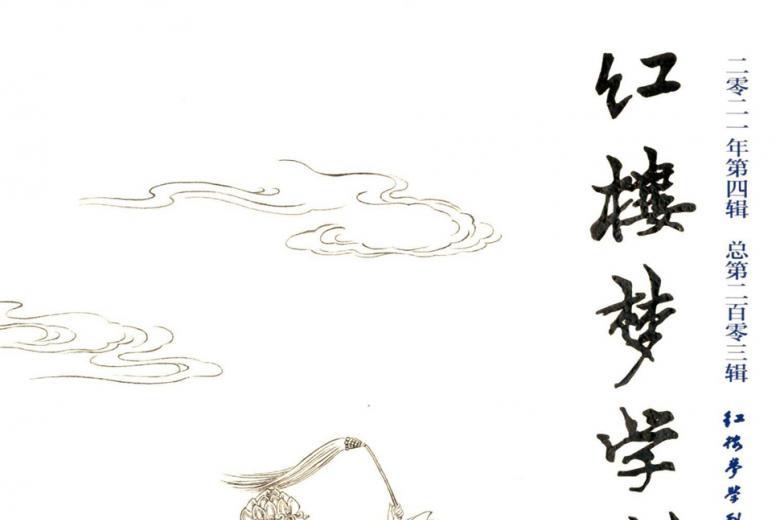 二零二一年第四辑 总第二百零三辑
红楼梦学
红楼梦学